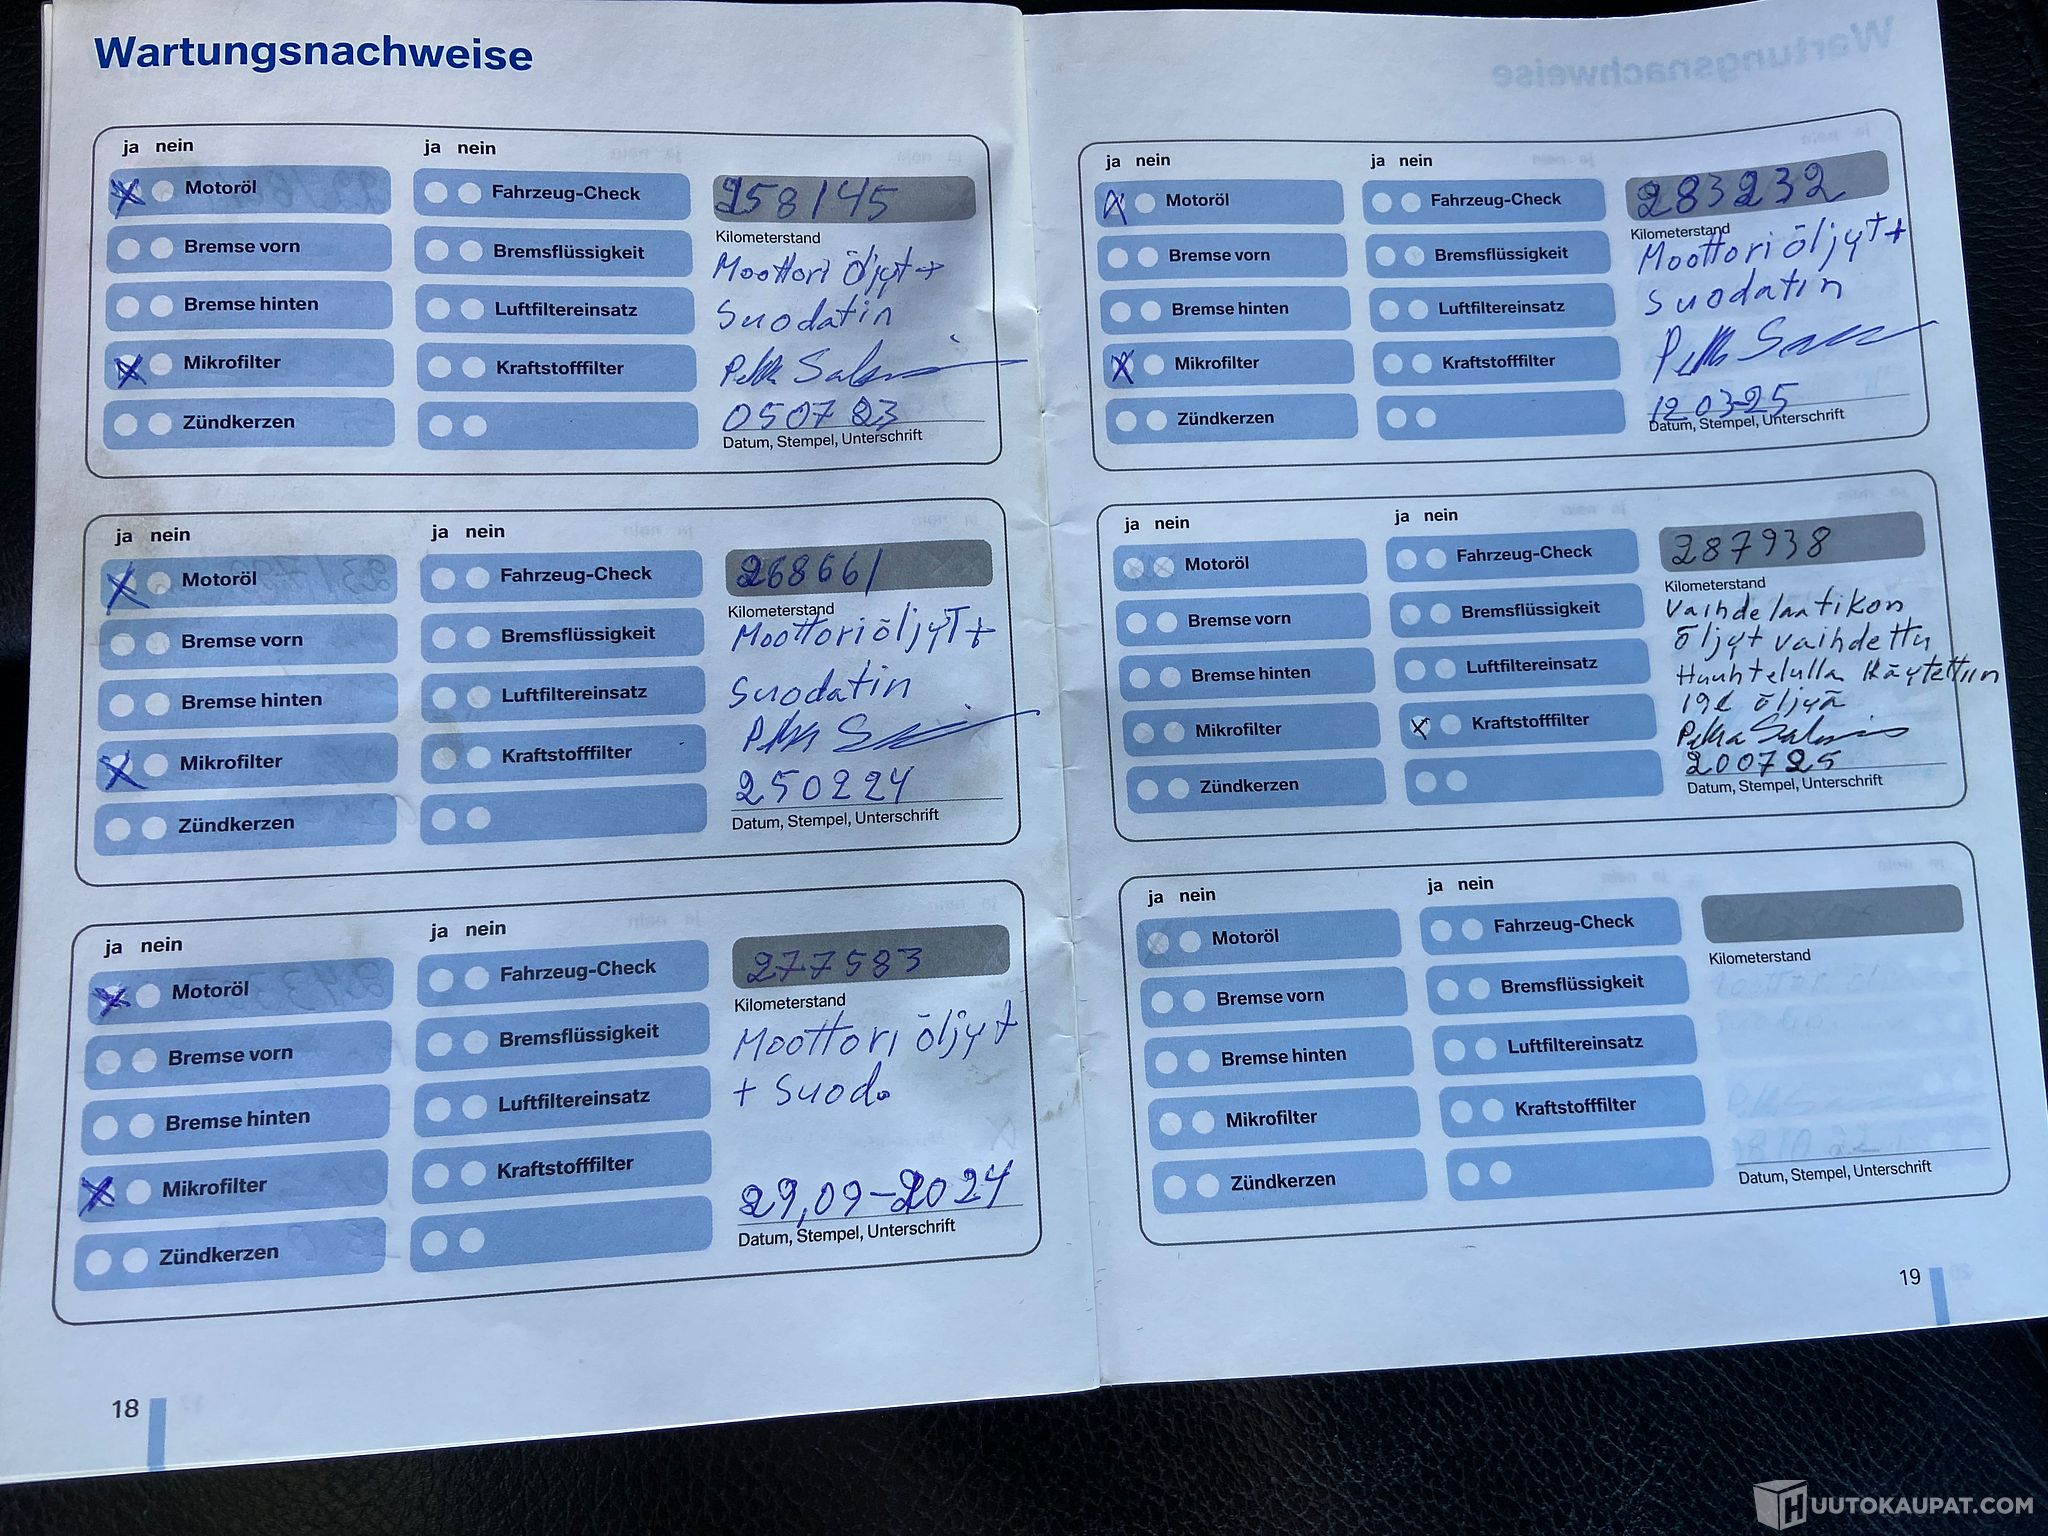 Wartungsnachweise
ja nein
ja nein
Motoröl
Fahrzeug-Check
258145
Kilometerstand
Bremse vorn
Bremsflüssigkeit
Moottori öljyt +
Bremse hinten
Luftfiltereinsatz
Suodatin
Mikrofilter
Kraftstofffilter
Zündkerzen
050723
Datum, Stempel, Unterschrift
ja nein
ja nein
Motoröl
Fahrzeug-Check
268661
Kilometerstand
Bremse vorn
Bremsflüssigkeit
Moottoriöljyt +
Bremse hinten
Luftfiltereinsatz
Suodatin
Mikrofilter
Kraftstofffilter
Zündkerzen
250224
Datum, Stempel, Unterschrift
ja nein
ja nein
Motoröl
Fahrzeug-Check
277583
Kilometerstand
Bremse vorn
Bremsflüssigkeit
Moottori öljyt
Bremse hinten
Luftfiltereinsatz
+ Suod.
Mikrofilter
Kraftstofffilter
Zündkerzen
29,09-2024
Datum, Stempel, Unterschrift
18
ja nein
ja nein
Motoröl
Fahrzeug-Check
283232
Kilometerstand
Bremse vorn
Bremsflüssigkeit
Moottoriöljyt +
Bremse hinten
Luftfiltereinsatz
suodatin
Mikrofilter
Kraftstofffilter
Zündkerzen
12 03-25
Datum, Stempel, Unterschrift
ja nein
ja nein
Motoröl
Fahrzeug-Check
287938
Kilometerstand
Bremse vorn
Bremsflüssigkeit
Vaihdelaatikon
öljyt vaihdettu
Bremse hinten
Luftfiltereinsatz
Huuhtelulla käytettiin
19l öljyä
Mikrofilter
Kraftstofffilter
Pekka
Zündkerzen
200725
Datum, Stempel, Unterschrift
ja nein
ja nein
Motoröl
Fahrzeug-Check
Kilometerstand
Bremse vorn
Bremsflüssigkeit
Bremse hinten
Luftfiltereinsatz
Mikrofilter
Kraftstofffilter
Zündkerzen
Datum, Stempel, Unterschrift
19
HUUTOKAUPAT.COM